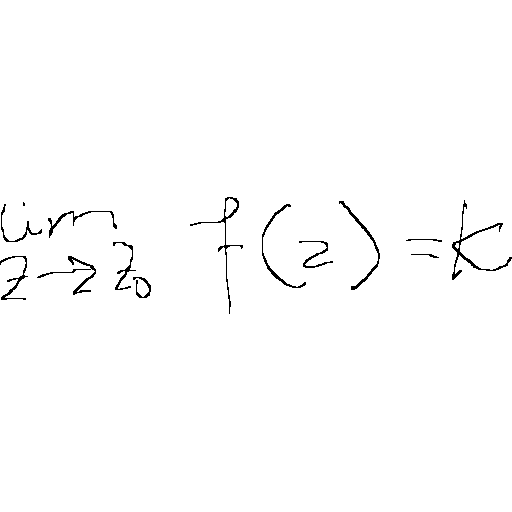 \lim_{z \to z_0} f(z) = K